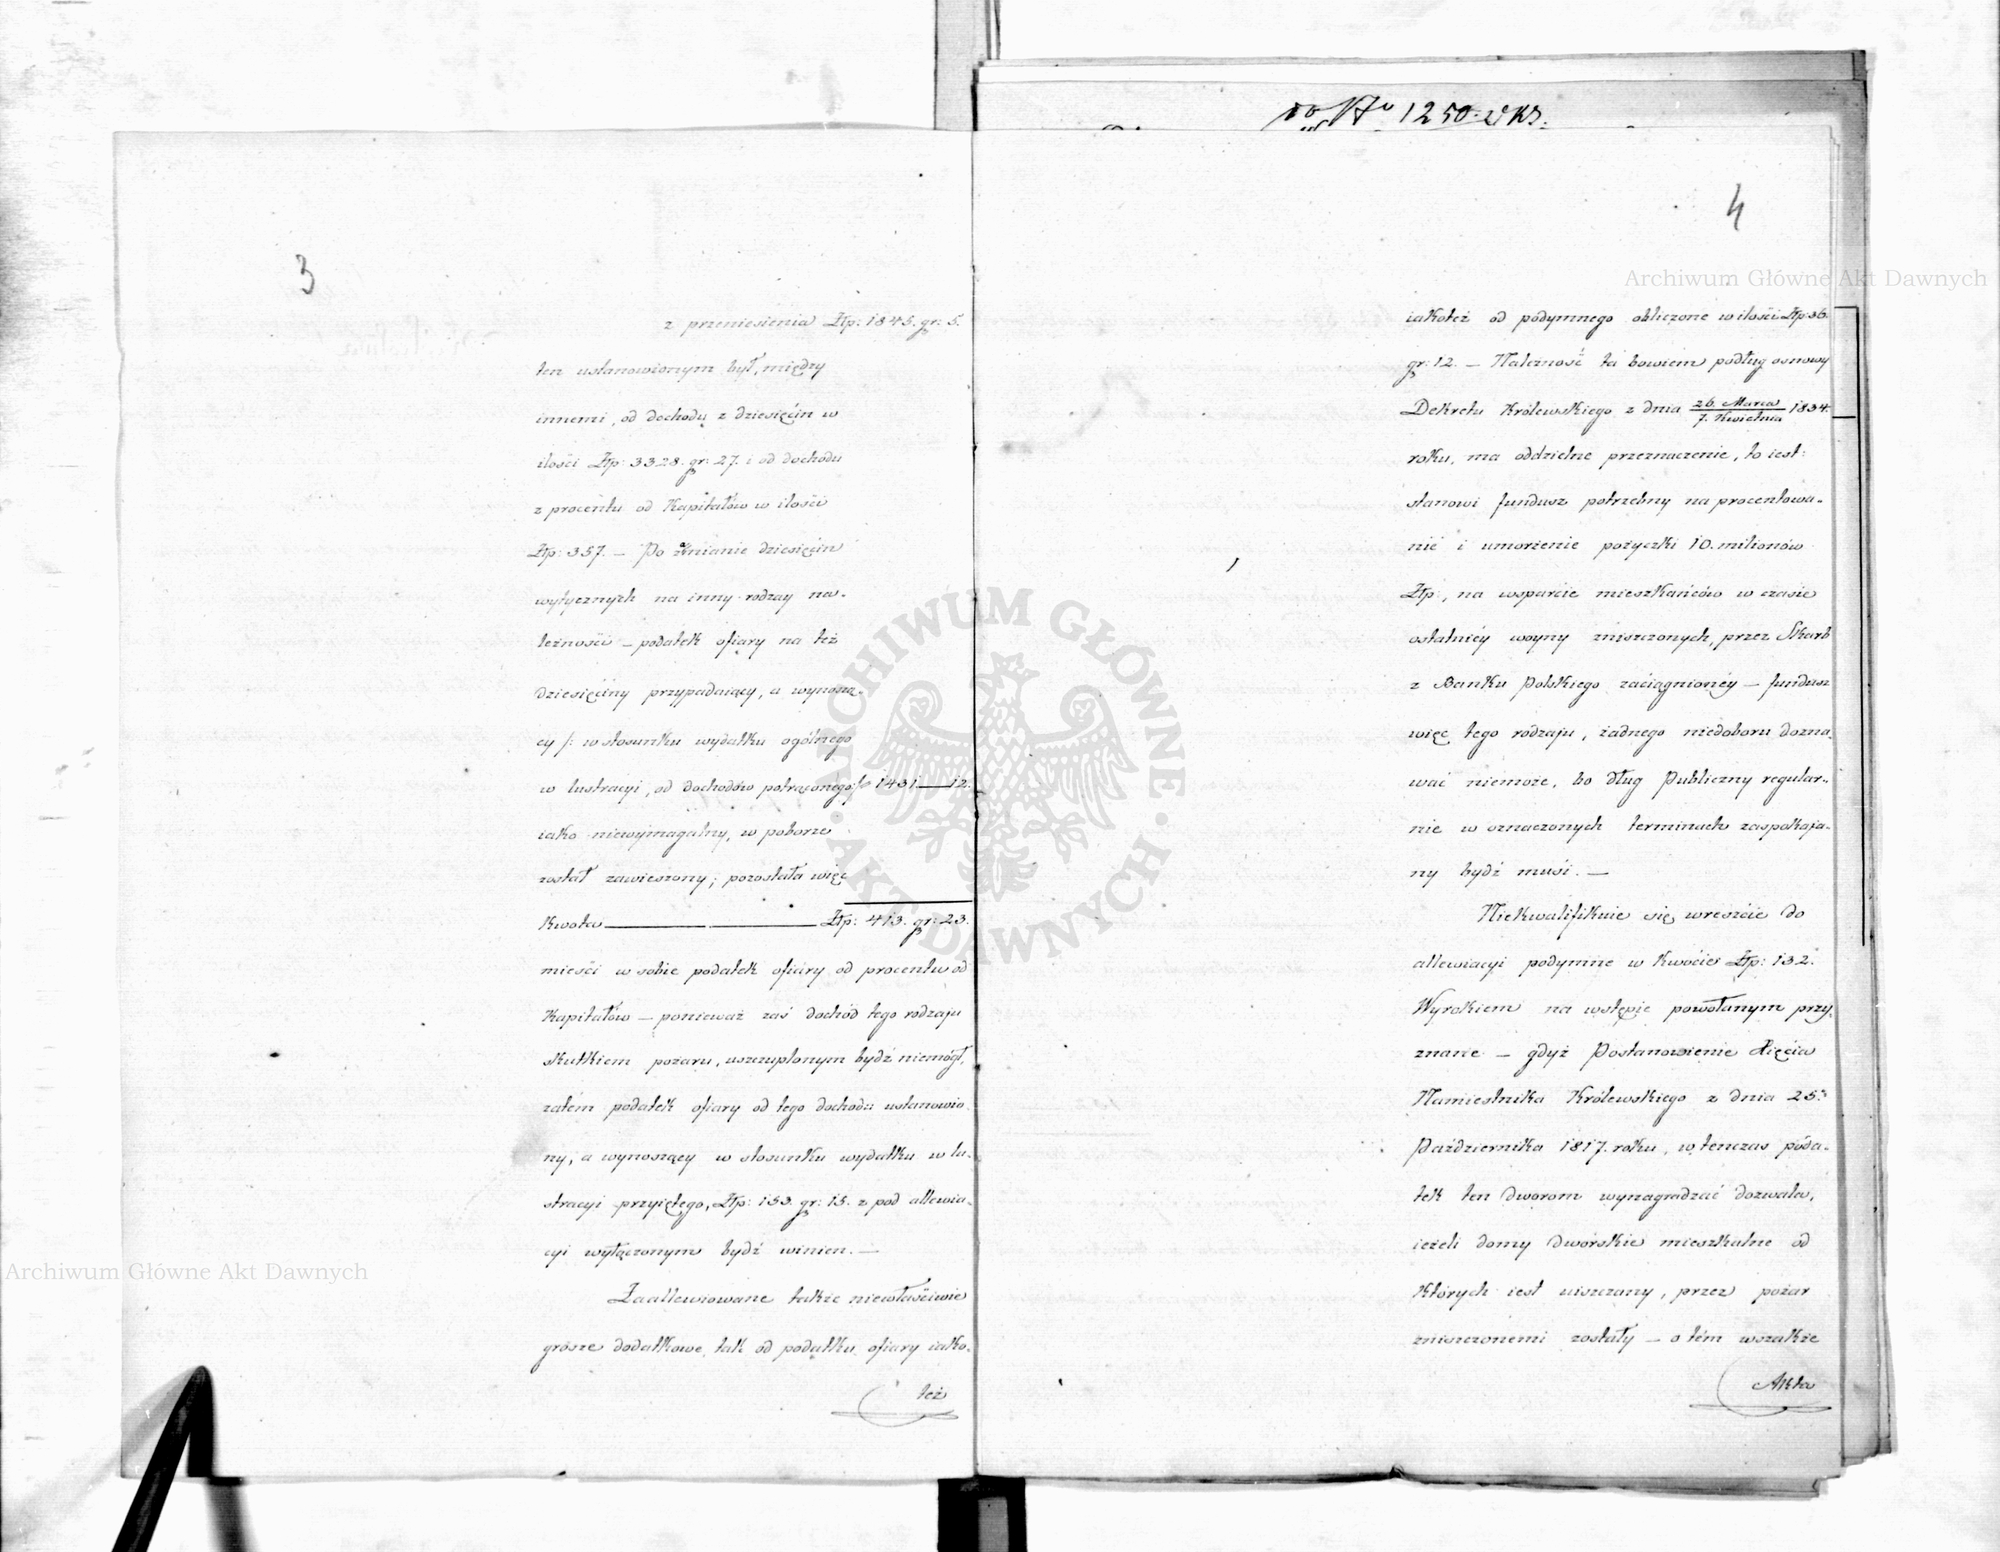 3
z przeniesienia Złp: 1845. gr: 5.
ten ustanowionym był, między
innemi, od dochodu z dziesięcin w
ilości Złp: 3328. gr: 27. i od dochodu
z procentu od Kapitałów w ilości
Złp: 357. — Po zmianie dziesięcin
wytycznych na inny rodzay na-
leżności — podatek ofiary na też
dziesięciny przypadaiący, a wynoszą-
cy /: w stosunku wydatku ogólnego
w lustracyi, od dochodów potrąconego :/ 1431.—12.
iako niewymagalny, w poborze
został zawieszony; pozostała więc
Kwota — Złp: 413. gr: 23.
mieści w sobie podatek ofiary od procentu od
Kapitałów — ponieważ zaś dochód tego rodzaju
skutkiem pożaru, uszczuplonym bydź niemógł,
zatém podatek ofiary od tego dochodu ustanowio
ny, a wynoszący w stosunku wydatku w lu-
stracyi przyiętego, Złp: 153. gr: 15. z pod allewia-
cyi wyłączonym bydź winien. —
Zaallewiowane także niewłaściwie
grosze dodatkowe, tak od podatku ofiary iako-
też
do No 1250
4
iakoteż od podymnego obliczone w ilości Złp: 36.
gr: 12. — Należność ta bowiem podług osnowy
Dekretu Królewskiego z dnia 26. Marca / 7. Kwietnia 1834.
roku, ma oddzielne przeznaczenie, to iest:
stanowi fundusz potrzebny na procentowa-
nie i umorzenie pożyczki 10. milionów
Złp:, na wsparcie mieszkańców w czasie
ostatniéy woyny zniszczonych, przez Skarb
z Banku Polskiego zaciągnionéy — fundusz
więc tego rodzaju, żadnego niedoboru dozna-
wać niemoże, bo dług Publiczny regular-
nie w oznaczonych terminach zaspokaja-
ny bydź musi. —
Niekwalifikuie się wreszcie do
allewiacyi podymne w kwocie Złp: 132.
Wyrokiem na wstępie powołanym przy-
znane — gdyż Postanowienie Xięcia
Namiestnika Królewskiego z dnia 25.
Października 1817. roku, wtenczas poda-
tek ten dworom wynagradzać dozwala,
ieżeli domy dworskie mieszkalne od
Których iest uiszczany, przez pożar
zniszczonemi zostały — o tém wszakże
Akta
Archiwum Główne Akt Dawnych
Archiwum Główne Akt Dawnych
ARCHIWUM GŁÓWNE · AKT DAWNYCH ·